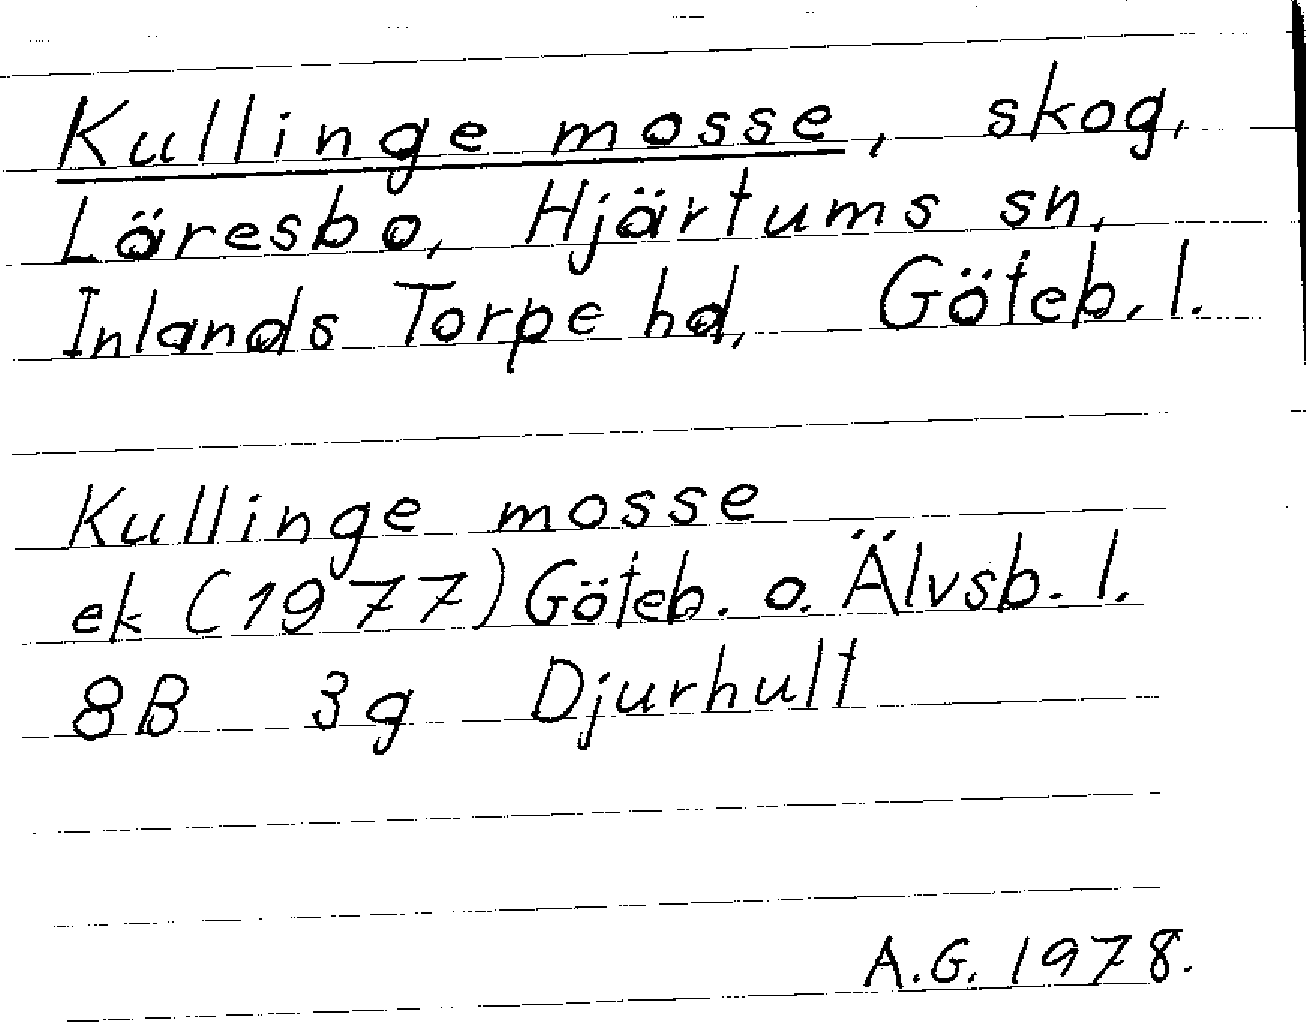 Kullinge mosse, skog,
Läresbo, Hjärtums sn,
Inlands Torpe hd, Göteb. l.
Kullinge mosse
ek (1977) Göteb. o. Älvsb. l.
8B 3g Djurhult
A.G. 1978.